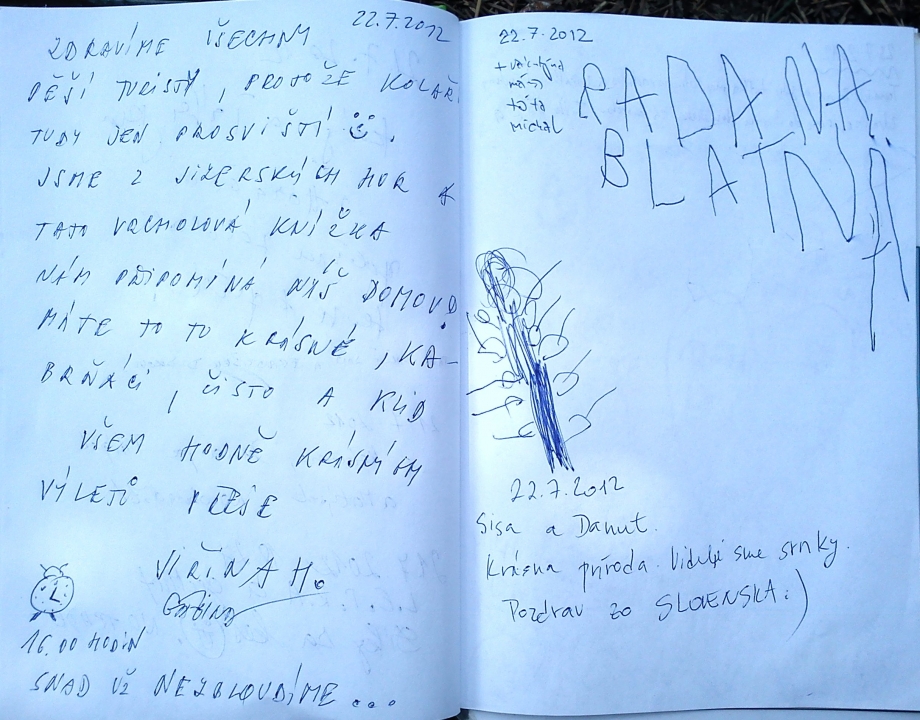 22.7.2012
ZDRAVÍME VŠECHNY
PĚŠÍ TURISTY, PROTOŽE KOLAŘI
TUDY JEN PROSVIŠTÍ.
JSME Z JIZERSKÝCH HOR A
TATO VRCHOLOVÁ KNÍŽKA
NÁM PŘIPOMÍNÁ NÁŠ DOMOV.
MÁTE TO TU KRÁSNÉ, KA-
BRŇÁCI, ČISTO A KLID
VŠEM HODNĚ KRÁSNÝCH
VÝLETŮ PŘEJE
JIŘINA H.
16.00 HODIN
SNAD UŽ NEZBLOUDÍME...
22.7.2012
RADA NA
BLATNÁ
+
táta
michal
22.7.2012
Sisa a Danut.
Krásna príroda. Videli sme srnky.
Pozdrav zo SLOVENSKA:)